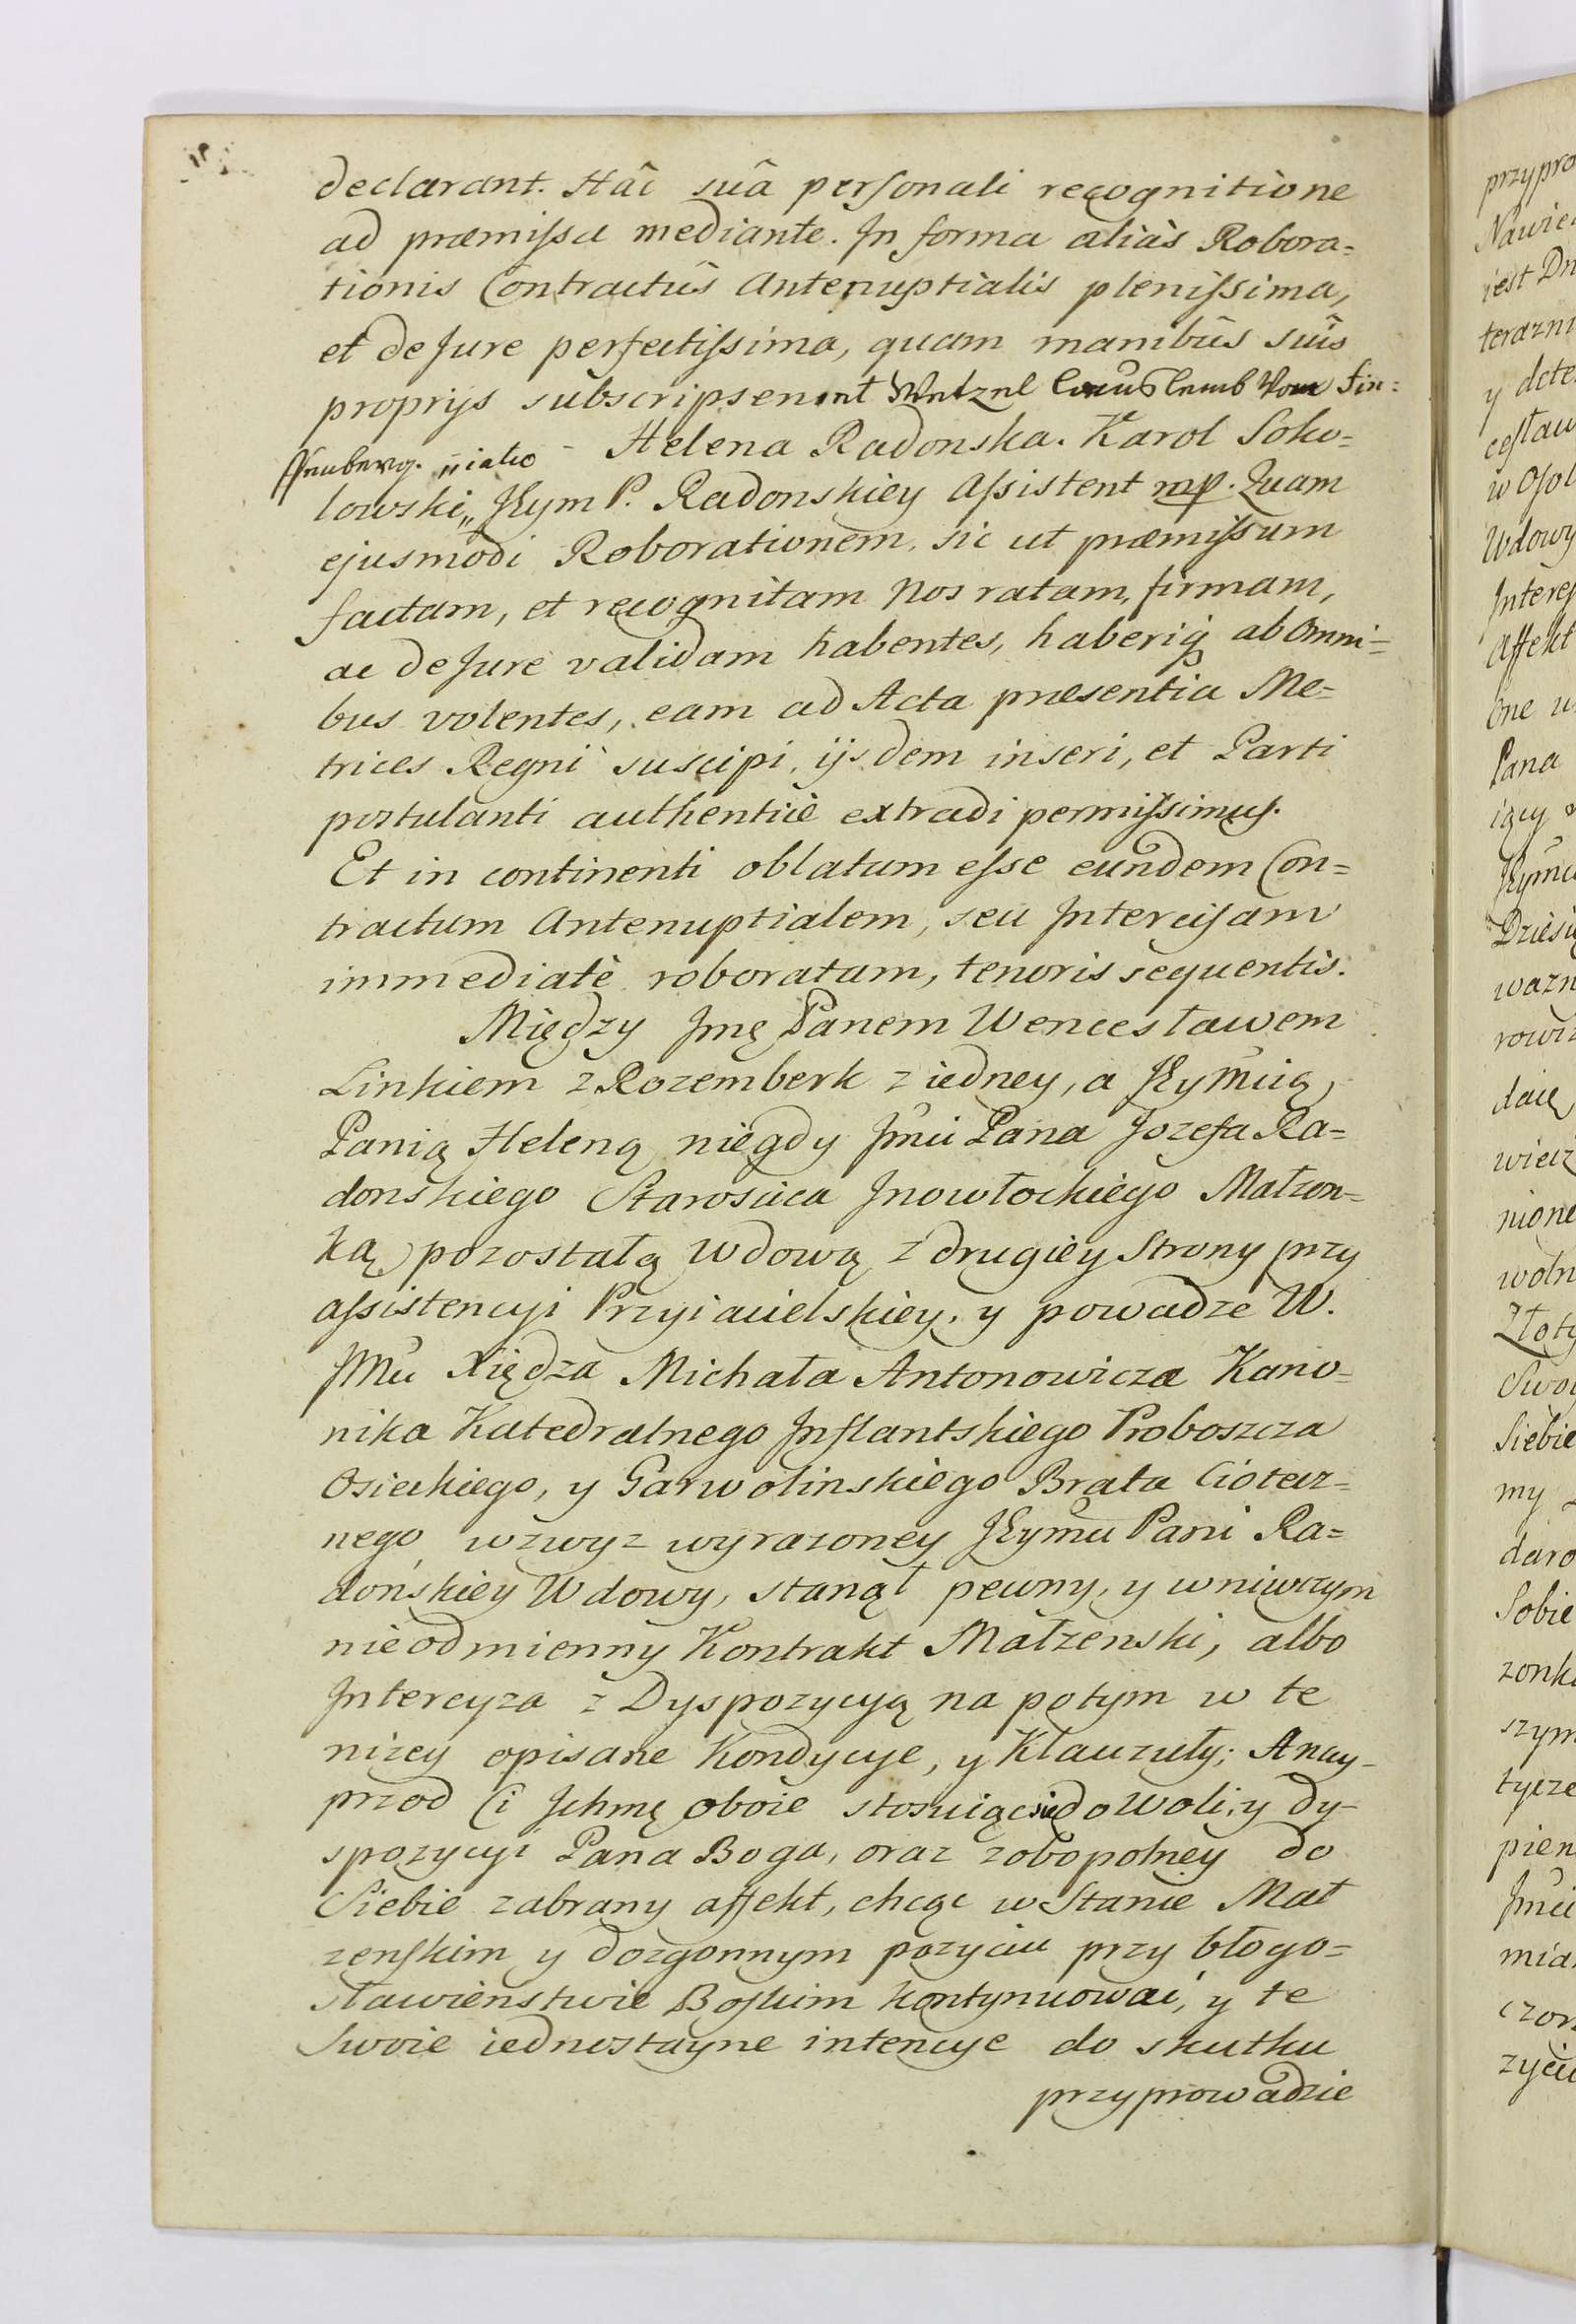 declarant. Hâc suâ personali recognitione
ad præmissa mediante. In forma aliàs Robora=
tionis Contractûs Antenuptialis plenissima,
et de Jure perfectissima, quam manibûs suîs
proprijs subscripserunt
Helena Radonska. Karol Soko=
lowski „ JEym P. Radonskiey Assistent mp. Quam
ejusmodi Roborationem, sic ut præmissum
factam, et recognitam Nos ratam, firmam,
ac de Jure validam habentes, haberiq ab Omni=
bus volentes, eam ad Acta præsentia Me=
trices Regni suscipi, ijsdem inseri, et Parti
postulanti authenticè extradi permissimus.
Et in continenti oblatum esse eundem Con=
tractum Antenuptialem, seu Intercisam
immediatè roboratam, tenoris sequentis.
Między Jmę Panem Wencesławem
Linkiem z Rozemberk z iedney, a JEymcią
Panią Heleną niegdy Jmci Pana Jozefa Ra=
donskiego Starosćica Jnowłockiego Małzon=
ką pozostałą Wdową z drugiey Strony przy
assistencyi Przyiacielskiey, y powadze W.
JMci Xiędza Michała Antonowicza Kano=
nika Katedralnego Jnflantskiego Proboszcza
Osieckiego, y Garwolinskiego Brata Ciotecz=
nego wzwyz wyrazoney JEymci Pani Ra=
dońskiey Wdowy, stanął pewny, y wniwczym
nieodmienny Kontrakt Małzenski, albo
Intercyza z Dyspozycyą na potym w te
nizey opisane Kondycye, y Klauzuły; A nay-
przod Ci Jchmę oboie stosuiąc się do Woli, y dy-
spozycyi Pana Boga, oraz zobopolney do
Siebie zabrany affekt, chcąc w Stanie Mał
zenskim y dozgonnym pozyciu przy błogo=
sławienstwie Boskim kontynuować, y te
Swoie iednostayne intencye do skutku
przyprowadzic